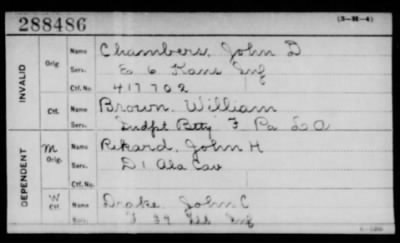 288486
(3—31—4)
INVALID
Orig.
Name Chambers, John D
Serv. E 6 Kans Inf
Ctf. No. 417702
Ctf.
Name Brown, William
Serv. Indpt Batty F Pa L A
DEPENDENT
M
Orig.
Name Rikard, John H
Serv. D 1 Ala Cav
Ctf. No.
W
Ctf.
Name Drake, John C
Serv. 39 Inf